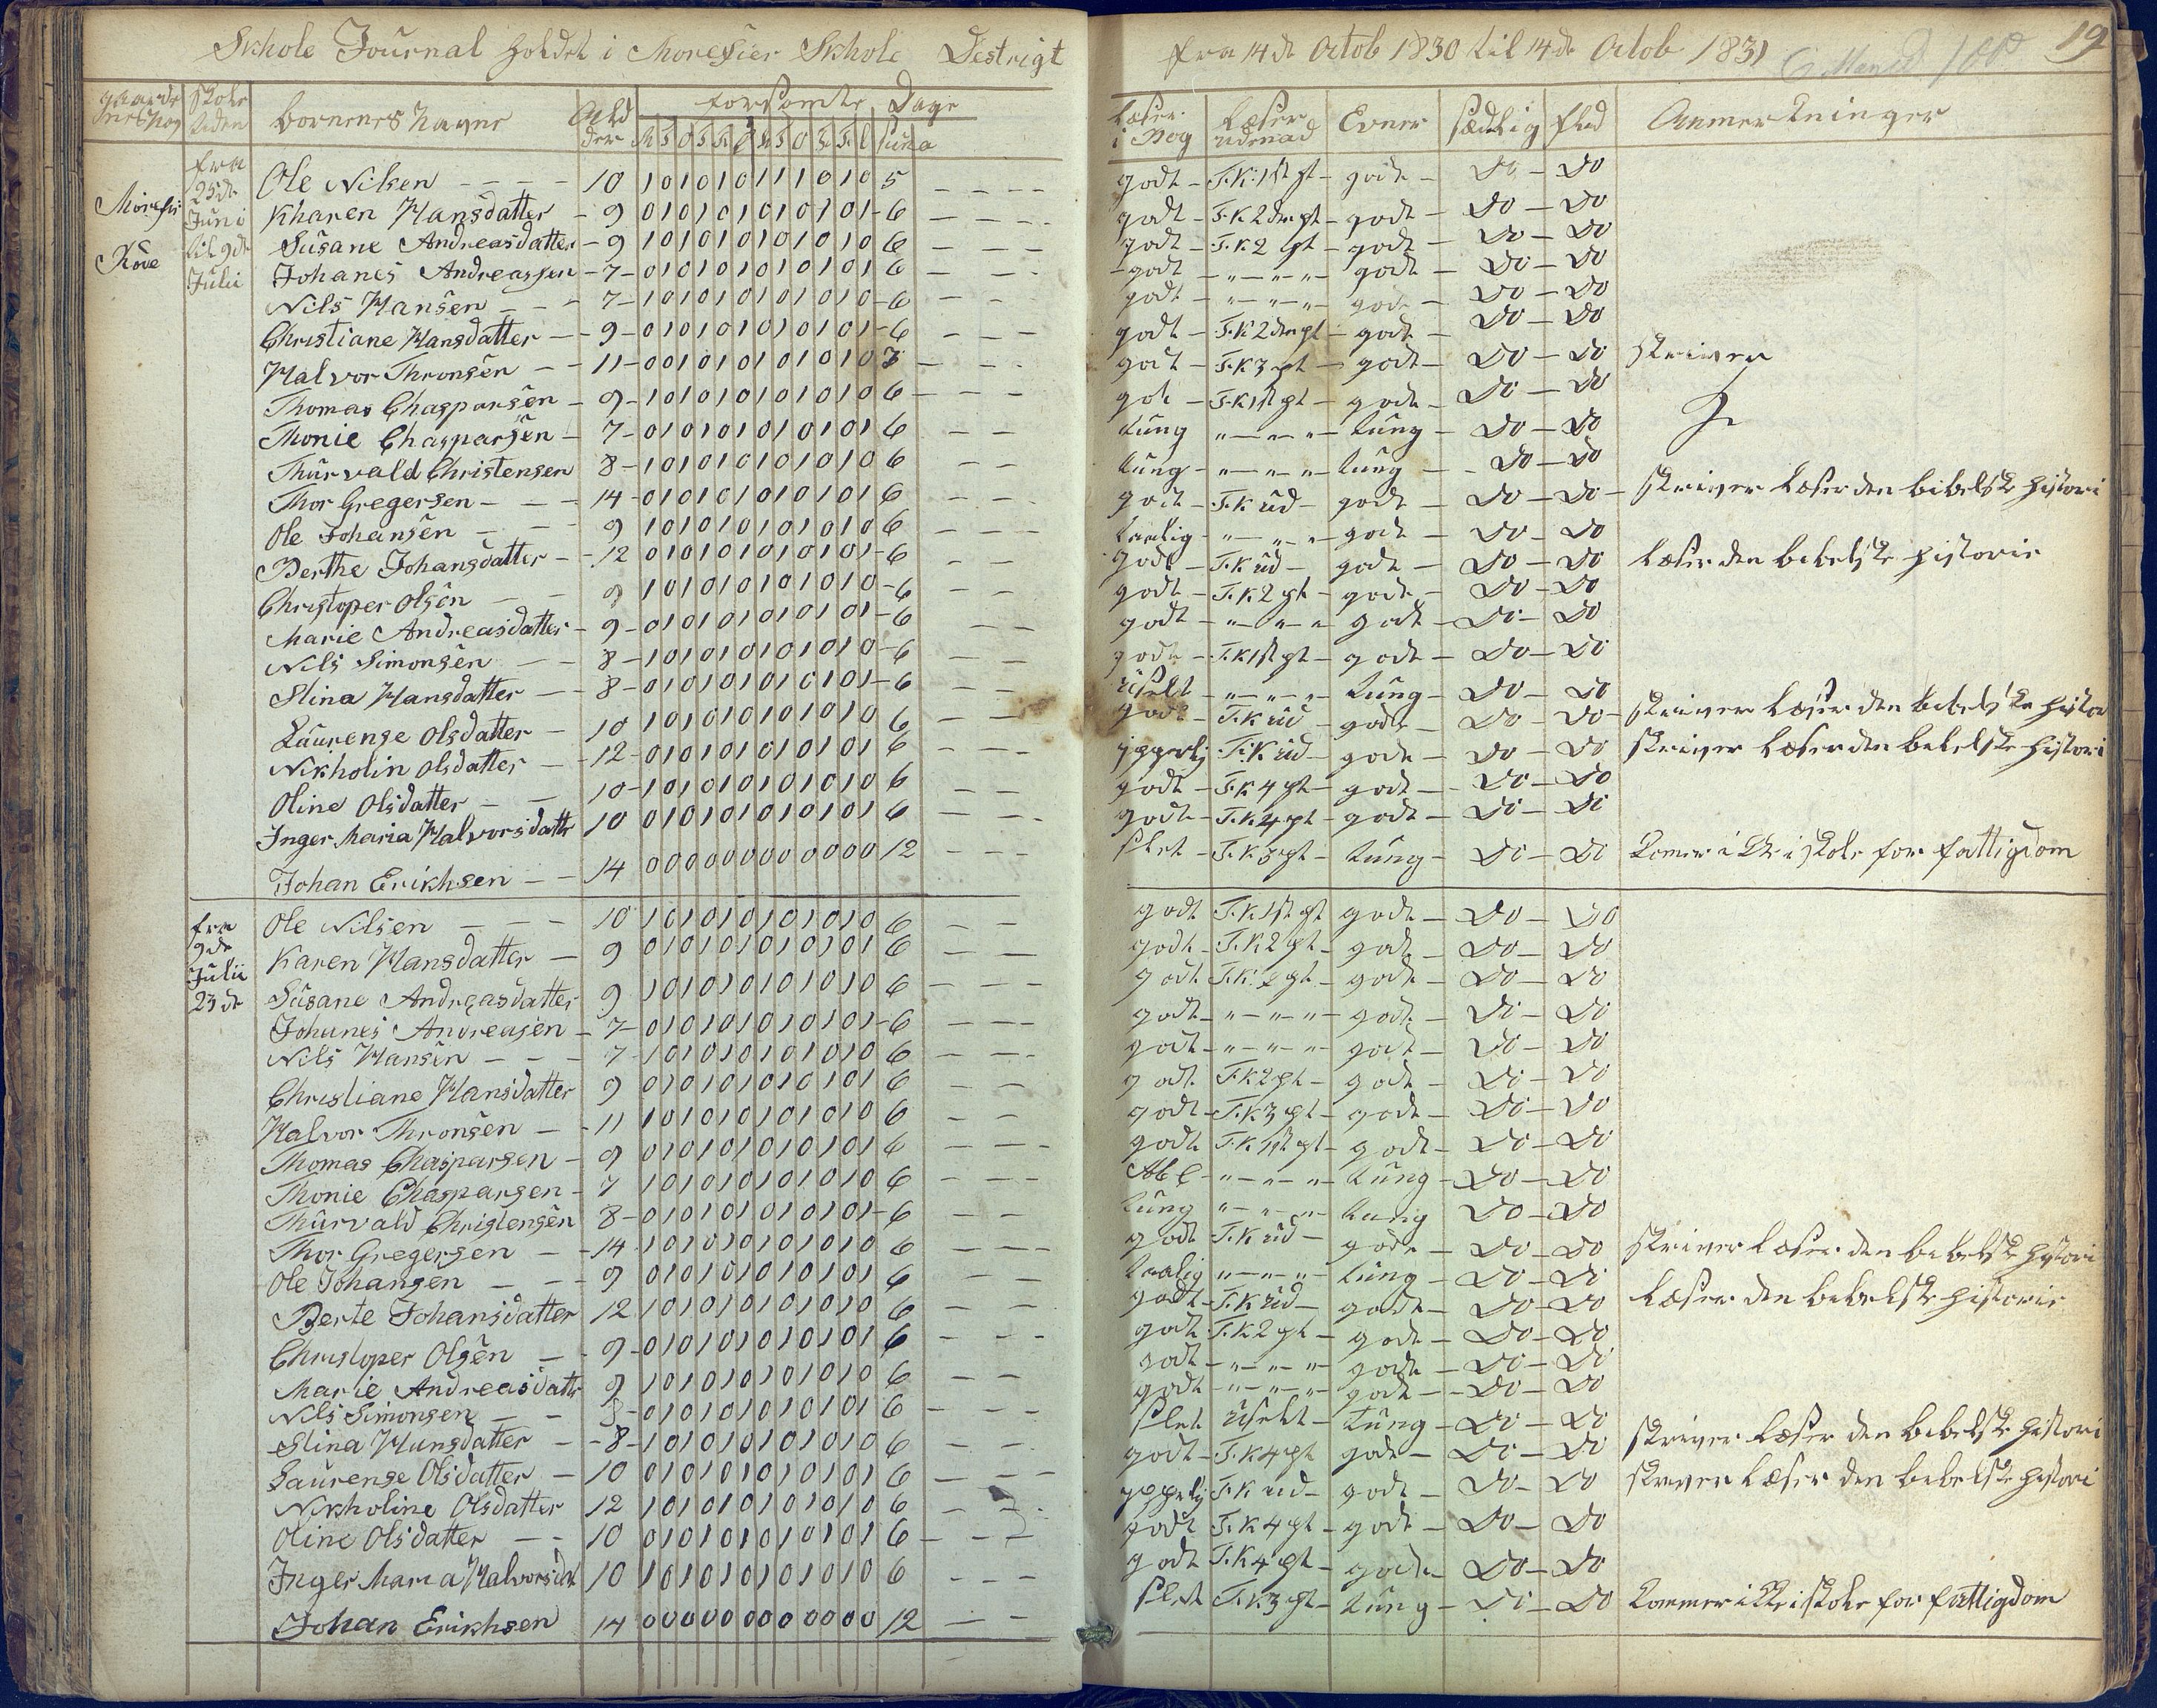 Skhole Journal holdet i Morefier Skhole Destrigt
fra 14de Octob 1830 til 14de Octob 1831 19
gaarde skole børnenes Nagne Ald forsømte Dage
tiden der M T O T F L M T O T F L suma
læser læser Evner sædelig flid Anmerkninger
i Bog udenad
fra 25de Juni til 9de Julii
Morefier
Røve
Ole Nilsen 10 1 0 1 0 1 0 1 1 1 0 1 0 5 godt T.K. 1st pt godt Do Do
Kharen Hansdatter 9 0 1 0 1 0 1 0 1 0 1 0 1 6 godt T.K 2den pt godt Do Do
Susane Andreasdatter 9 1 0 1 0 1 0 1 0 1 0 1 0 6 godt T.K 2 pt godt Do Do
Johanes Andreassen 7 0 1 0 1 0 1 0 1 0 1 0 1 6 godt " " " " godt Do Do
Nils Hansen 7 1 0 1 0 1 0 1 0 1 0 1 0 6 godt " " " " godt Do Do
Christiane Hansdatter 9 0 1 0 1 0 1 0 1 0 1 0 1 6 godt T.K 2den pt godt Do Do
Halvor Thronsen 11 0 0 1 0 1 0 1 0 1 0 1 0 7 godt T.K 3 pt godt Do Do skriver
Thomas Chasparsen 9 1 0 1 0 1 0 1 0 1 0 1 0 6 got T.K 1st pt godt Do Do
Thonie Chasparsen 7 0 1 0 1 0 1 0 1 0 1 0 1 6 tung " " " " tung Do Do
Thurvald Christensen 8 1 0 1 0 1 0 1 0 1 0 1 0 6 tung " " " " tung Do Do
Thor Gregersen 14 0 1 0 1 0 1 0 1 0 1 0 1 6 godt T.K ud godt Do Do skriver læser den bibelske histori
Ole Johansen 9 1 0 1 0 1 0 1 0 1 0 1 0 6 taalig " " " " godt Do Do
Berthe Johansdatter 12 0 1 0 1 0 1 0 1 0 1 0 1 6 godt T.K ud godt Do Do læser den bebelske historie
Christoper Olsen 9 1 0 1 0 1 0 1 0 1 0 1 0 6 godt T.K 2 pt godt Do Do
Marie Andreasdatter 9 0 1 0 1 0 1 0 1 0 1 0 1 6 godt " " " " godt Do Do
Nils Simonsen 8 1 0 1 0 1 0 1 0 1 0 1 0 6 godt T.K 1st pt godt Do Do
Stina Hansdatter 8 0 1 0 1 0 1 0 1 0 1 0 1 6 uselt " " " " tung Do Do
Laurense Olsdatter 10 1 0 1 0 1 0 1 0 1 0 1 0 6 godt T.K ud godt Do Do skriver læser den bebelske histor
Nikholin Olsdatter 12 0 1 0 1 0 1 0 1 0 1 0 1 6 T.K ud godt Do Do skriver læser den bebelske histori
Oline Olsdatter 10 1 0 1 0 1 0 1 0 1 0 1 0 6 godt T.K 4 pt godt Do Do
Inger Maria Halvorsdattr 10 0 1 0 1 0 1 0 1 0 1 0 1 6 godt T.K 4 pt godt Do Do
Johan Erikhsen 14 0 0 0 0 0 0 0 0 0 0 0 0 12 slet T.K 3 pt tung Do Do komer ikke i skole for fattigdom
fra 9de Julii 23de
Ole Nilsen 10 1 0 1 0 1 0 1 0 1 0 1 0 6 godt T.K 1st pt godt Do Do
Karen Hansdatter 9 0 1 0 1 0 1 0 1 0 1 0 1 6 godt T.K 2 pt godt Do Do
Susane Andreasdatter 9 1 0 1 0 1 0 1 0 1 0 1 0 6 godt T.K. 2 pt godt Do Do
Johanes Andreasen 7 0 1 0 1 0 1 0 1 0 1 0 1 6 godt " " " " godt Do Do
Nils Hansen 7 1 0 1 0 1 0 1 0 1 0 1 0 6 godt " " " " godt Do Do
Christiane Hansdatter 9 0 1 0 1 0 1 0 1 0 1 0 1 6 godt T.K 2 pt godt Do Do
Halvor Thronsen 11 1 0 1 0 1 0 1 0 1 0 1 0 6 godt T.K 3 pt godt Do Do
Thomas Chasparsen 9 0 1 0 1 0 1 0 1 0 1 0 1 6 godt T.K 1st pt godt Do Do
Thonie Chasparsen 7 1 0 1 0 1 0 1 0 1 0 1 0 6 Abc " " " " tung Do Do
Thurvald Christensen 8 0 1 0 1 0 1 0 1 0 1 0 1 6 tung " " " " tung Do Do
Thor Gregersen 14 1 0 1 0 1 0 1 0 1 0 1 0 6 godt T.K ud godt Do Do skriver læser den bebelske histori
Ole Johansen 9 0 1 0 1 0 1 0 1 0 1 0 1 6 taalig " " " " tung Do Do
Berte Johansdatter 12 1 0 1 0 1 0 1 0 1 0 1 0 6 godt T.K ud godt Do Do læser den bebelske historie
Christoper Olsen 9 0 1 0 1 0 1 0 1 0 1 0 1 6 godt T.K 2 pt godt Do Do
Marie Andreasdattr 9 1 0 1 0 1 0 1 0 1 0 1 0 6 godt " " " " godt Do Do
Nils Simonsen 8 0 1 0 1 0 1 0 1 0 1 0 1 6 godt " " " " godt Do Do
Stina Hansdatter 8 1 0 1 0 1 0 1 0 1 0 1 0 6 slet uselt tung Do Do
Laurense Olsdatter 10 0 1 0 1 0 1 0 1 0 1 0 1 6 godt T.K 4 pt godt Do Do skriver læser den bebelske histori
Nikholine Olsdatter 12 1 0 1 0 1 0 1 0 1 0 1 0 6 T.K ud godt Do Do skriver læser den bebelske histori
Oline Olsdatter 10 0 1 0 1 0 1 0 1 0 1 0 1 6 godt T.K 4 pt godt Do Do
Inger Maria Halvorsdat 10 1 0 1 0 1 0 1 0 1 0 1 0 6 godt T.K 4 pt godt Do Do
Johan Erikhsen 14 0 0 0 0 0 0 0 0 0 0 0 0 12 slet T.K 3 pt tung Do Do kommer ikke i skole for fattigdom